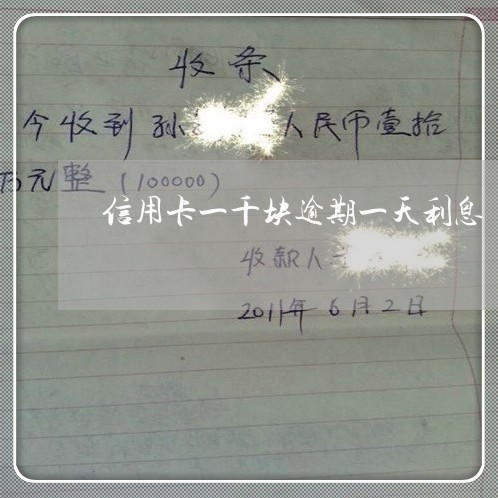 收条
今收到孙人民币壹拾
万元整(100000)
信用卡一千块逾期一天利息
收款人
2011年6月2日